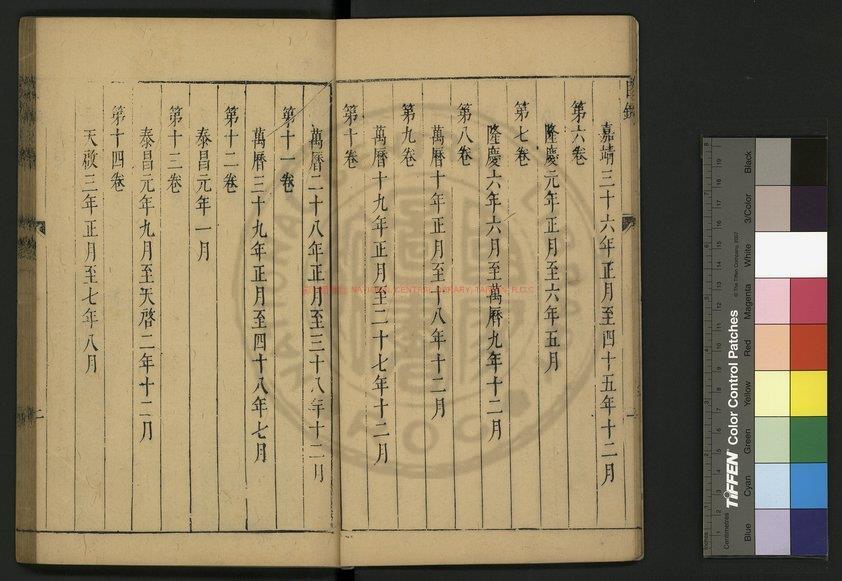 目錄
嘉靖三十六年正月至四十五年十二月
第六卷
隆慶元年正月至六年五月
第七卷
隆慶六年六月至萬曆九年十二月
第八卷
萬曆十年正月至十八年十二月
第九卷
萬曆十九年正月至二十七年十二月
第十卷
萬曆二十八年正月至三十八年十二月
第十一卷
萬曆三十九年正月至四十八年七月
第十二卷
泰昌元年一月
第十三卷
泰昌元年九月至天啓二年十二月
第十四卷
天啟三年正月至七年八月
二
NATIONAL CENTRAL LIBRARY, TAIWAN, R.O.C
TIFFEN Color Control Patches
© The Tiffen Company, 2007
Centimetres
Inches
Blue
Cyan
Green
Yellow
Red
Magenta
White
3/Color
Black